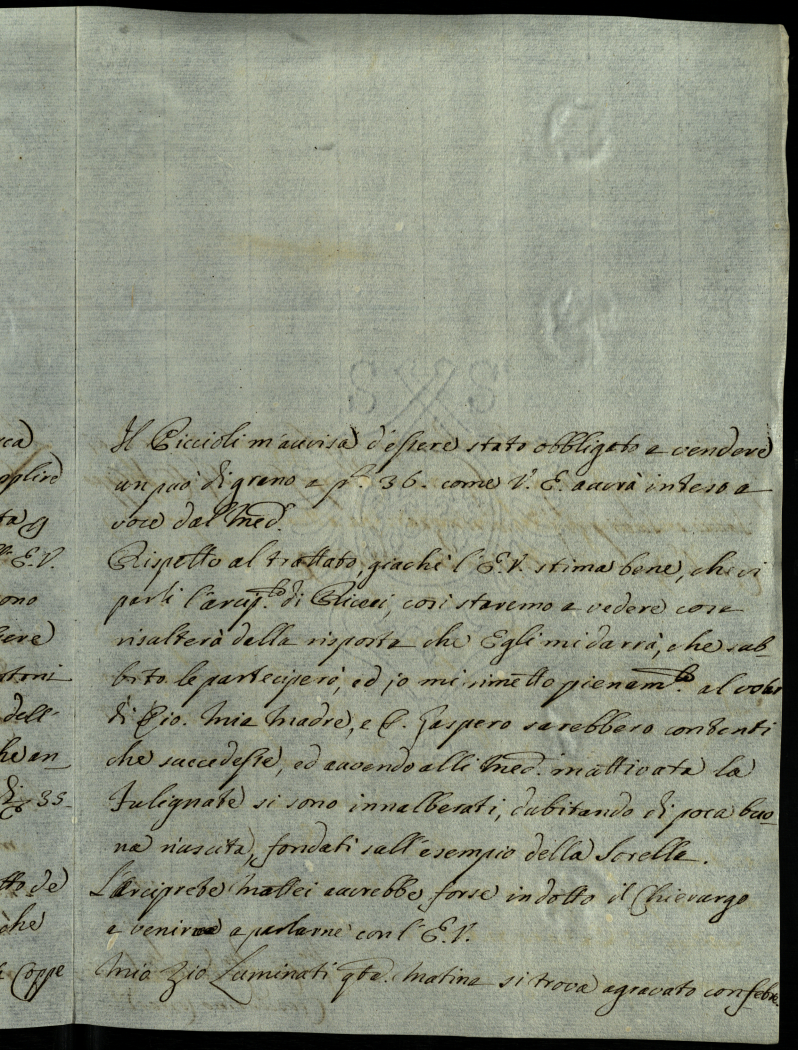 Il Piccioli m'auvisa d'essere stato obbligato a vendere
un puo di grano a p.i 36. come V. E. aurà inteso a
voce dal med.o
Rispetto al trattato, giachè l'E.V. stima bene, che vi
parli l'arcip.te di Ricci, cosi staremo a vedere cosa
risalterà dalla risposta che Egli mi darrà, che sub-
bito le parteciperò, ed io mi rimetto pienam.te al voler
di Dio. Mia Madre, e C. Gaspero sarebbero contenti
che succedesse, ed auvendo alli med. mattivata la
Fulignate si sono innalberati, dubitando di poca buo-
na riuscita, fondati sull'esempio della Sorella.
L'arciprete Mattei aurebbe forse indotto il Chievargo
a venire a parlarne con l'E.V.
Mio Zio Luminati q.ta matina si trova agravato con febre.
S S
E.V.
ono
dell'
he an-
di 35
che
Coppe